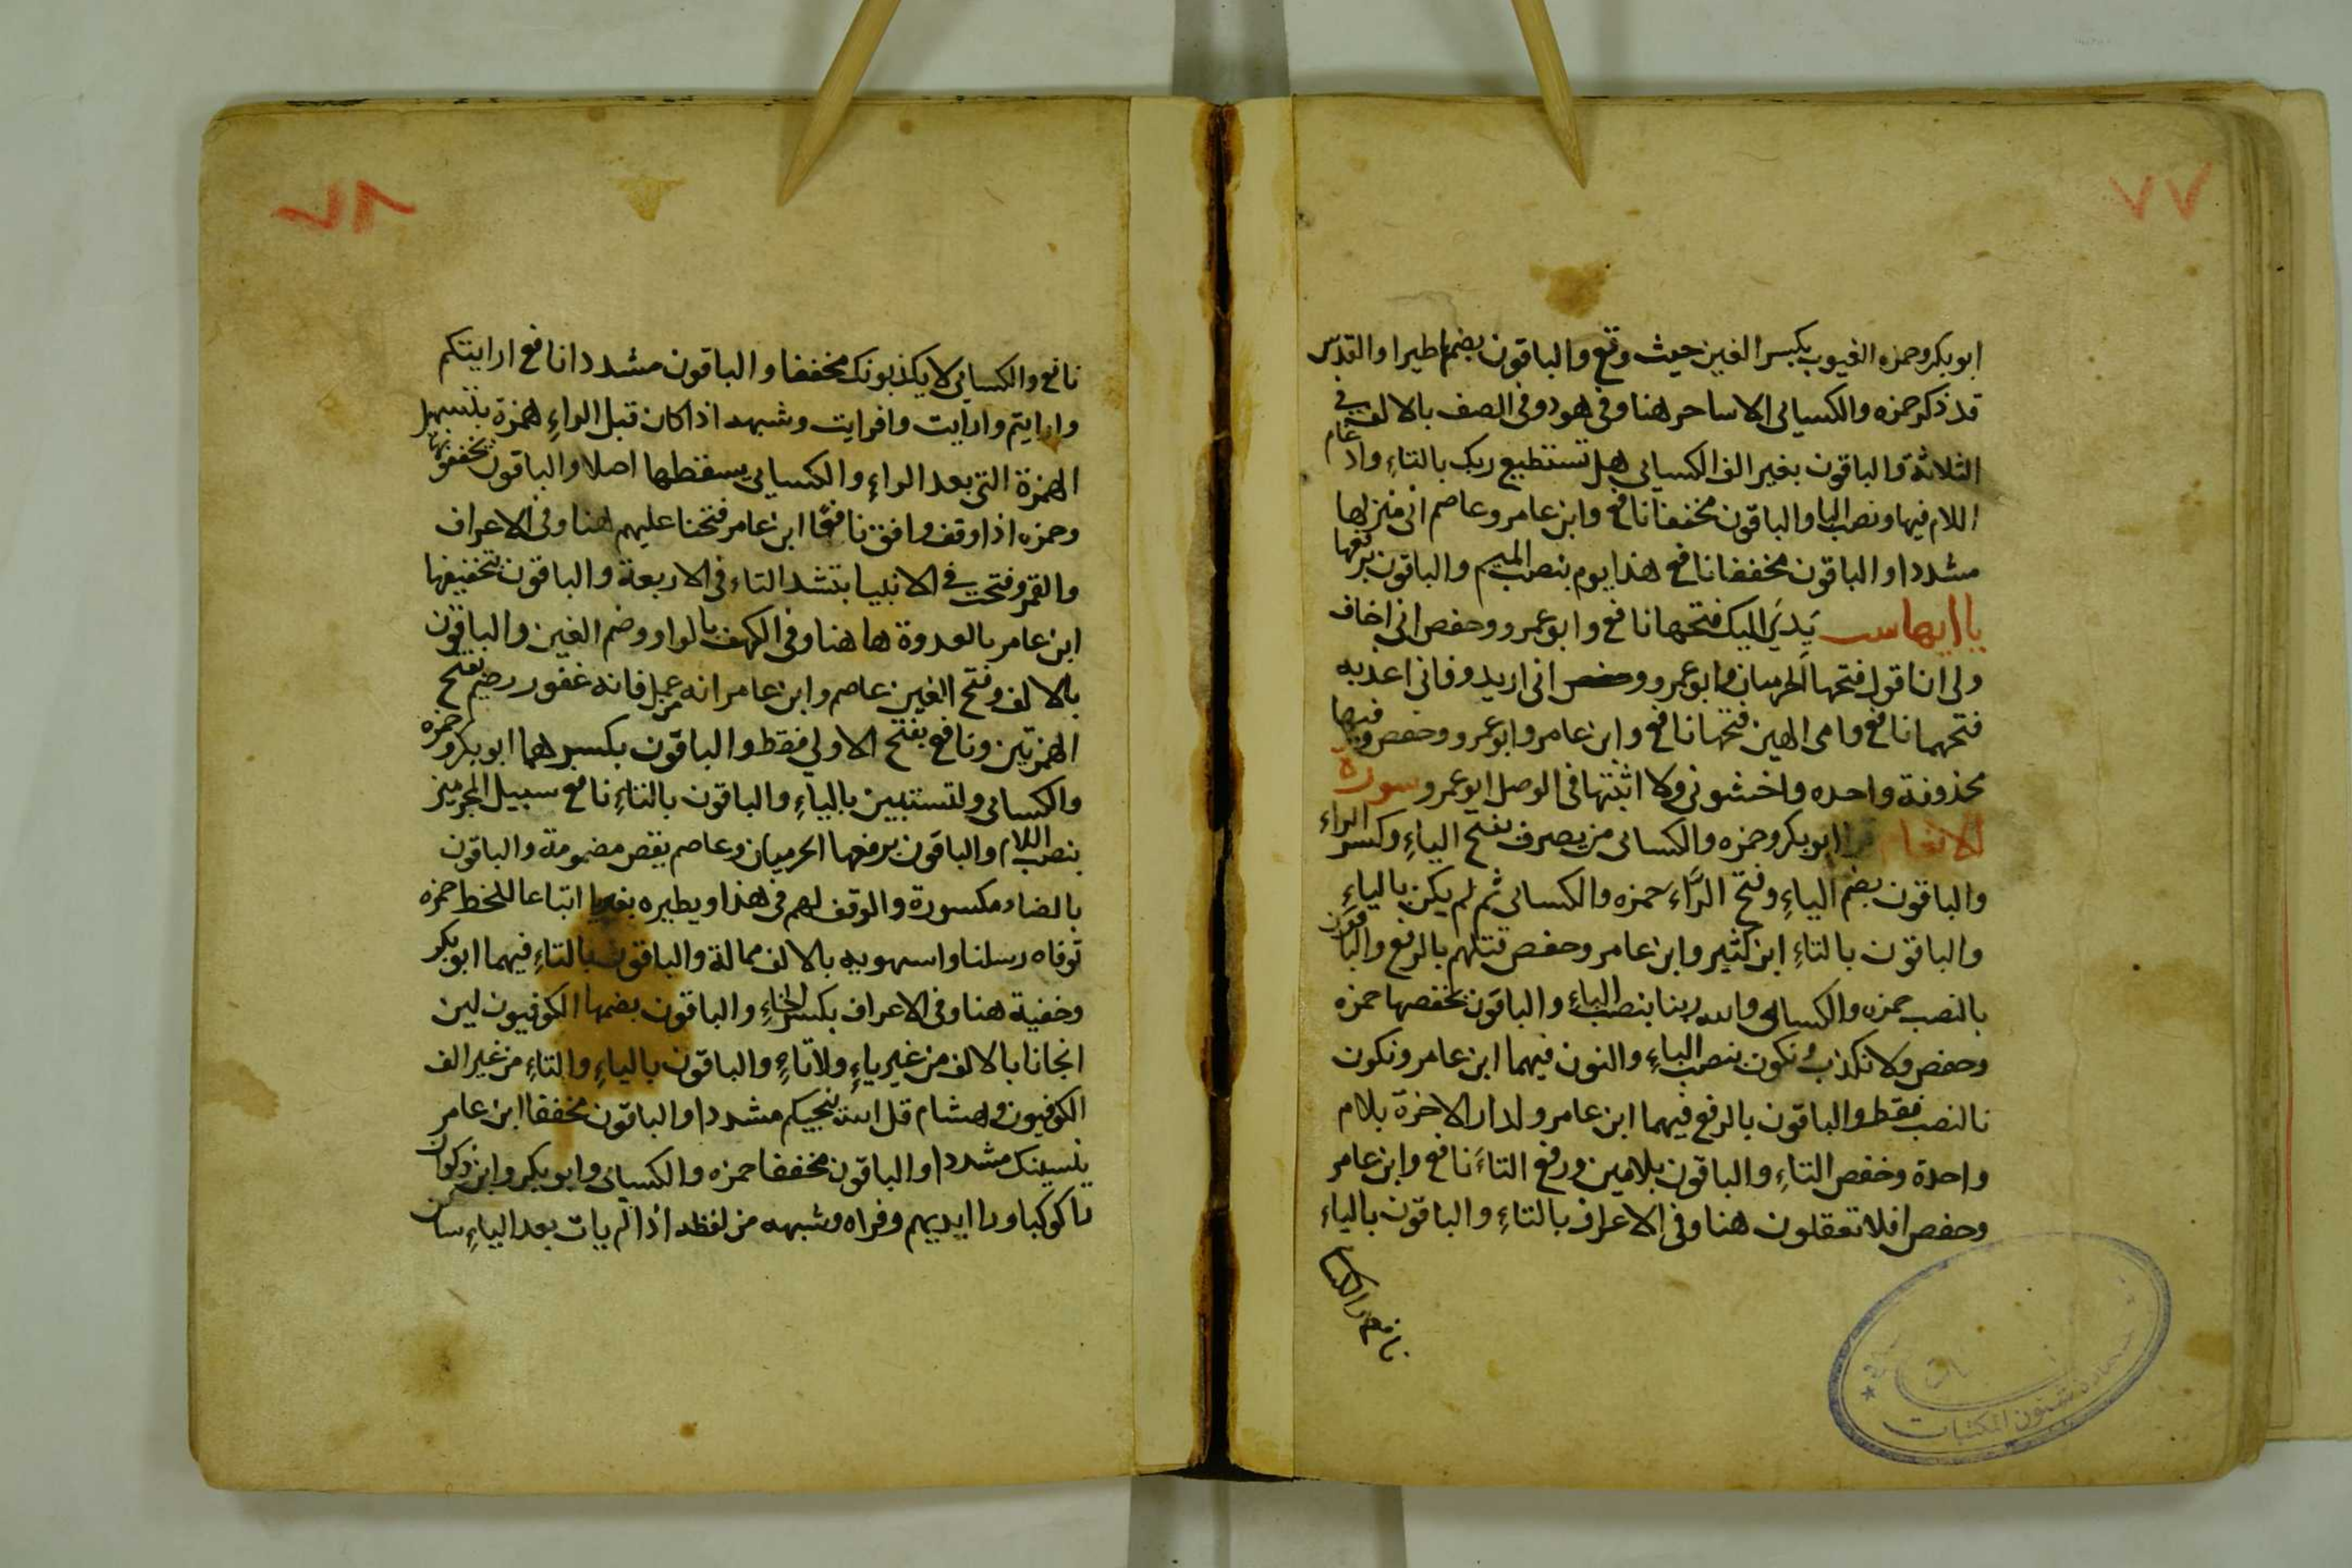 ٧٧
ابوبكر وحمزه الغيوب بكسر الغين حيث وقع والباقون بضمها طيرا والقدس
قد ذكر حمزه والكسائى الا ساحر هنا وفى هود وفى الصف بالالف فى
الثلاثة والباقون بغير الف الكسائى هل تستطيع ربك بالتاء وادغام
اللام فيها ونصب البا والباقون مخففا نافع وابن عامر وعاصم انى منزلها
مشددا والباقون مخففا نافع هذا يوم بنصب الميم والباقون برفعها
ياايها ست يَدِيَ اليك فتحها نافع وابو عمرو وحفص انى اخاف
ولى ان اقول فتحها الحرميان وابو عمرو وحفص انى اريد وفانى اعذبه
فتحهما نافع وامى الهين فتحها نافع وابن عامر وابو عمرو وحفص وفيها
محذوفة واحده واخشونى ولا اثبتها فى الوصل ابو عمرو سورة
الانعام قرا ابوبكر وحمزه والكسائى من يصرف بفتح الياء وكسر الراء
والباقون بضم الياء وفتح الراء حمزه والكسائى ثم لم يكن بالياء
والباقون بالتاء ابن كثير وابن عامر وحفص فتنتهم بالرفع والباقون
بالنصب حمزه والكسائى والله ربنا بنصب الباء والباقون بخفضها حمزه
وحفص ولا نكذب ونكون بنصب الباء والنون فيهما ابن عامر ونكون
بالنصب فقط والباقون بالرفع فيهما ابن عامر ولدار الاخرة بلام
واحدة وخفض التاء والباقون بلامين ورفع التاء نافع وابن عامر
وحفص افلا تعقلون هنا وفى الاعراف بالتاء والباقون بالياء
نافع والكسا
شئون المكتبات
٧٨
نافع والكسائى لا يكذبونك مخففا والباقون مشددا نافع ارايتكم
وارايتم وارايت وافرايت وشبهه اذا كان قبل الراء همزة بتسهيل
الهمزة التى بعد الراء والكسائى يسقطها اصلا والباقون يخففونها
وحمزه اذا وقف وافق نافعًا ابن عامر فتحنا عليهم هنا وفى الاعراف
والقمر وفتحت فى الانبيا بتشد التاء فى الاربعة والباقون بتخفيفها
ابن عامر بالغدوة هاهنا وفى الكهف بالواو وضم الغين والباقون
بالالف وفتح الغين عاصم وابن عامر انه من عمل فانه غفور رحيم بفتح
الهمزتين ونافع بفتح الاولى فقط والباقون بكسرهما ابوبكر وحمزه
والكسائى ولتستبين بالياء والباقون بالتاء نافع سبيل المجرمين
بنصب اللام والباقون برفعها الحرميان وعاصم يقص مضمومة والباقون
بالضاد مكسورة والوقف لهم فى هذا ويطيره بغير يا اتباعا للخط حمزه
توفاه رسلنا واستهويه بالالف ممالة والباقون بالتاء فيهما ابوبكر
وخفية هنا وفى الاعراف بكسر الخاء والباقون بضمها الكوفيون لين
انجانا بالالف من غير ياء ولا تاء والباقون بالياء والتاء من غير الف
الكوفيون وهشام قل الله ينجيكم مشددا والباقون مخففا ابن عامر
ينسينك مشددا والباقون مخففا حمزه والكسائى وابوبكر وابن ذكوان
را كوكبا ورا ايديهم وفراه وشبهه من لفظه اذا لم يات بعد الياء ساكن